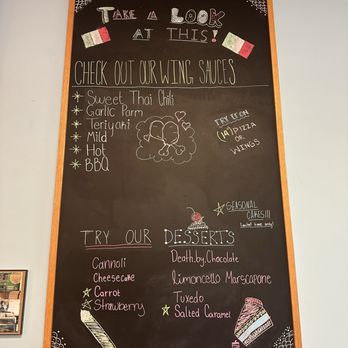 TAKE A LOOK
AT THIS!
CHECK OUT OUR WING SAUCES
Sweet Thai Chili
Garlic Parm
Teriyaki
Mild
Hot
BBQ
TRY IT ON
PIZZA
OR
WINGS
SEASONAL
CAKES!!!
limited time only!
TRY OUR DESSERTS
Cannoli
Cheesecake
Carrot
Strawberry
Death by Chocolate
Limoncello Marscapone
Tuxedo
Salted Caramel